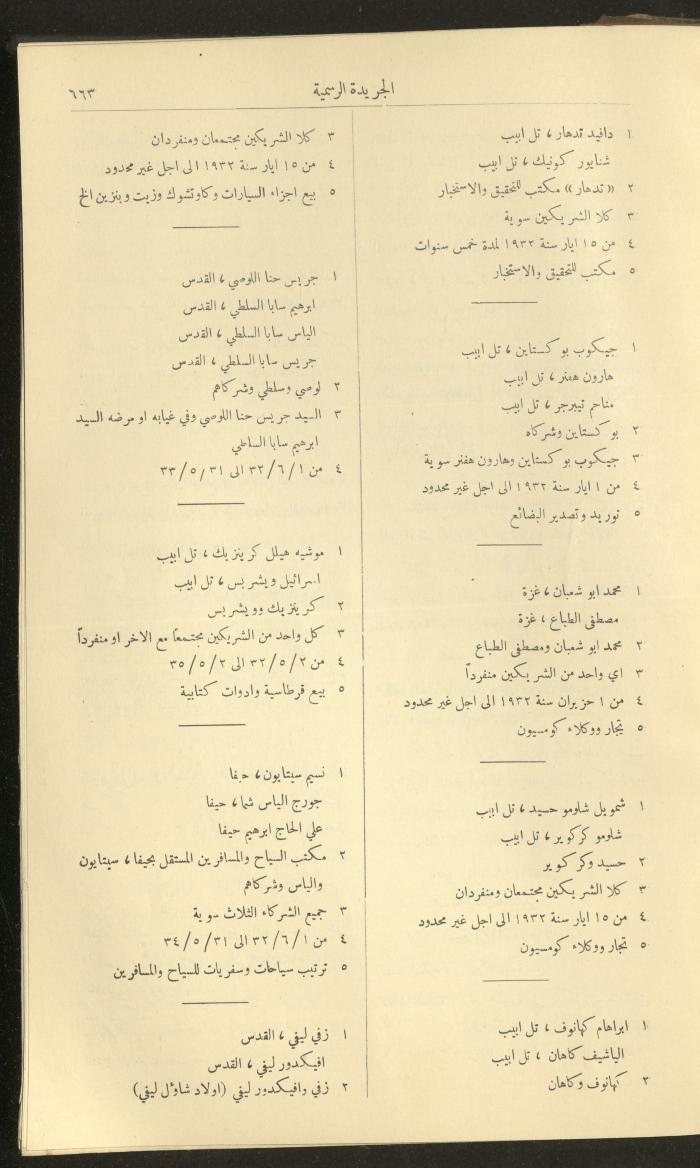 الجريدة الرسمية
٦٦٣
١ دافيد تدهار ، تل ابيب
شنايور كونيك ، تل ابيب
٢ «تدهار» مكتب للتحقيق والاستخبار
٣ كلا الشريكين سوية
٤ من ١٥ ايار سنة ١٩٣٢ لمدة خمس سنوات
٥ مكتب للتحقيق والاستخبار
١ جيكوب بوكستاين ، تل ابيب
هارون هفنر ، تل ابيب
مناحم تيبرجر ، تل ابيب
٢ بوكستاين وشركاه
٣ جيكوب بوكستاين وهارون هفنر سوية
٤ من ١ ايار سنة ١٩٣٢ الى اجل غير محدود
٥ توريد وتصدير البضائع
١ محمد ابو شعبان ، غزة
مصطفى الطباع ، غزة
٢ محمد ابو شعبان ومصطفى الطباع
٣ اي واحد من الشريكين منفرداً
٤ من ١ حزيران سنة ١٩٣٢ الى اجل غير محدود
٥ تجار ووكلاء كومسيون
١ شمويل شلومو حسيد ، تل ابيب
شلومو كركوير ، تل ابيب
٢ حسيد وكركوير
٣ كلا الشريكين مجتمعان ومنفردان
٤ من ١٥ ايار سنة ١٩٣٢ الى اجل غير محدود
٥ تجار ووكلاء كومسيون
١ ابراهام كهانوف ، تل ابيب
الياشيف كاهان ، تل ابيب
٢ كهانوف وكاهان
٣ كلا الشريكين مجتمعان ومنفردان
٤ من ١٥ ايار سنة ١٩٣٢ الى اجل غير محدود
٥ بيع اجزاء السيارات وكاوتشوك وزيت وبنزين الخ
١ جريس حنا اللوصي ، القدس
ابرهيم سابا السلطي ، القدس
الياس سابا السلطي ، القدس
جريس سابا السلطي ، القدس
٢ لوصي وسلطي وشركاهم
٣ السيد جريس حنا اللوصي وفي غيابه او مرضه السيد
ابرهيم سابا السلطي
٤ من ٣٢/٦/١ الى ٣٣/٥/٣١
١ موشيه هيلل كرينزيك ، تل ابيب
اسرائيل ويشربس ، تل ابيب
٢ كرينزيك وويشربس
٣ كل واحد من الشريكين مجتمعاً مع الاخر او منفرداً
٤ من ٣٢/٥/٢ الى ٣٥/٥/٢
٥ بيع قرطاسية وادوات كتابية
١ نسيم سيتايون ، حيفا
جورج الياس شما ، حيفا
علي الحاج ابرهيم حيفا
٢ مكتب السياح والمسافرين المستقل بحيفا ، سيتايون
والياس وشركاهم
٣ جميع الشركاء الثلاث سوية
٤ من ٣٢/٦/١ الى ٣٤/٥/٣١
٥ ترتيب سياحات وسفريات للسياح والمسافرين
١ زفي ليفي ، القدس
افيكدور ليفي ، القدس
٢ زفي وافيكدور ليفي (اولاد شاؤل ليفي)